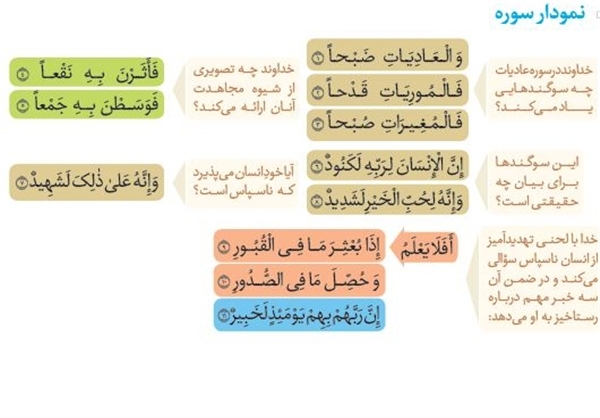 نمودار سوره
خداوند در سوره عادیات
چه سوگندهایی
یاد می‌کند؟
وَ الْعَادِيَاتِ ضَبْحاً ﴿١﴾
فَالْمُورِيَاتِ قَدْحاً ﴿٢﴾
فَالْمُغِيرَاتِ صُبْحاً ﴿٣﴾
خداوند چه تصویری
از شیوه مجاهدت
آنان ارائه می‌کند؟
فَأَثَرْنَ بِهِ نَقْعاً ﴿٤﴾
فَوَسَطْنَ بِهِ جَمْعاً ﴿٥﴾
این سوگندها
برای بیان چه
حقیقتی است؟
إِنَّ الْإِنْسَانَ لِرَبِّهِ لَكَنُودٌ ﴿٦﴾
وَإِنَّهُ لِحُبِّ الْخَيْرِ لَشَدِيدٌ ﴿٨﴾
آیا خود انسان می‌پذیرد
که ناسپاس است؟
وَإِنَّهُ عَلَىٰ ذٰلِكَ لَشَهِيدٌ ﴿٧﴾
خدا با لحنی تهدیدآمیز
از انسان ناسپاس سؤالی
می‌کند و در ضمن آن
سه خبر مهم درباره
رستاخیز به او می‌دهد:
أَفَلَا يَعْلَمُ
إِذَا بُعْثِرَ مَا فِي الْقُبُورِ ﴿٩﴾
وَ حُصِّلَ مَا فِي الصُّدُورِ ﴿١٠﴾
إِنَّ رَبَّهُمْ بِهِمْ يَوْمَئِذٍ لَخَبِيرٌ ﴿١١﴾